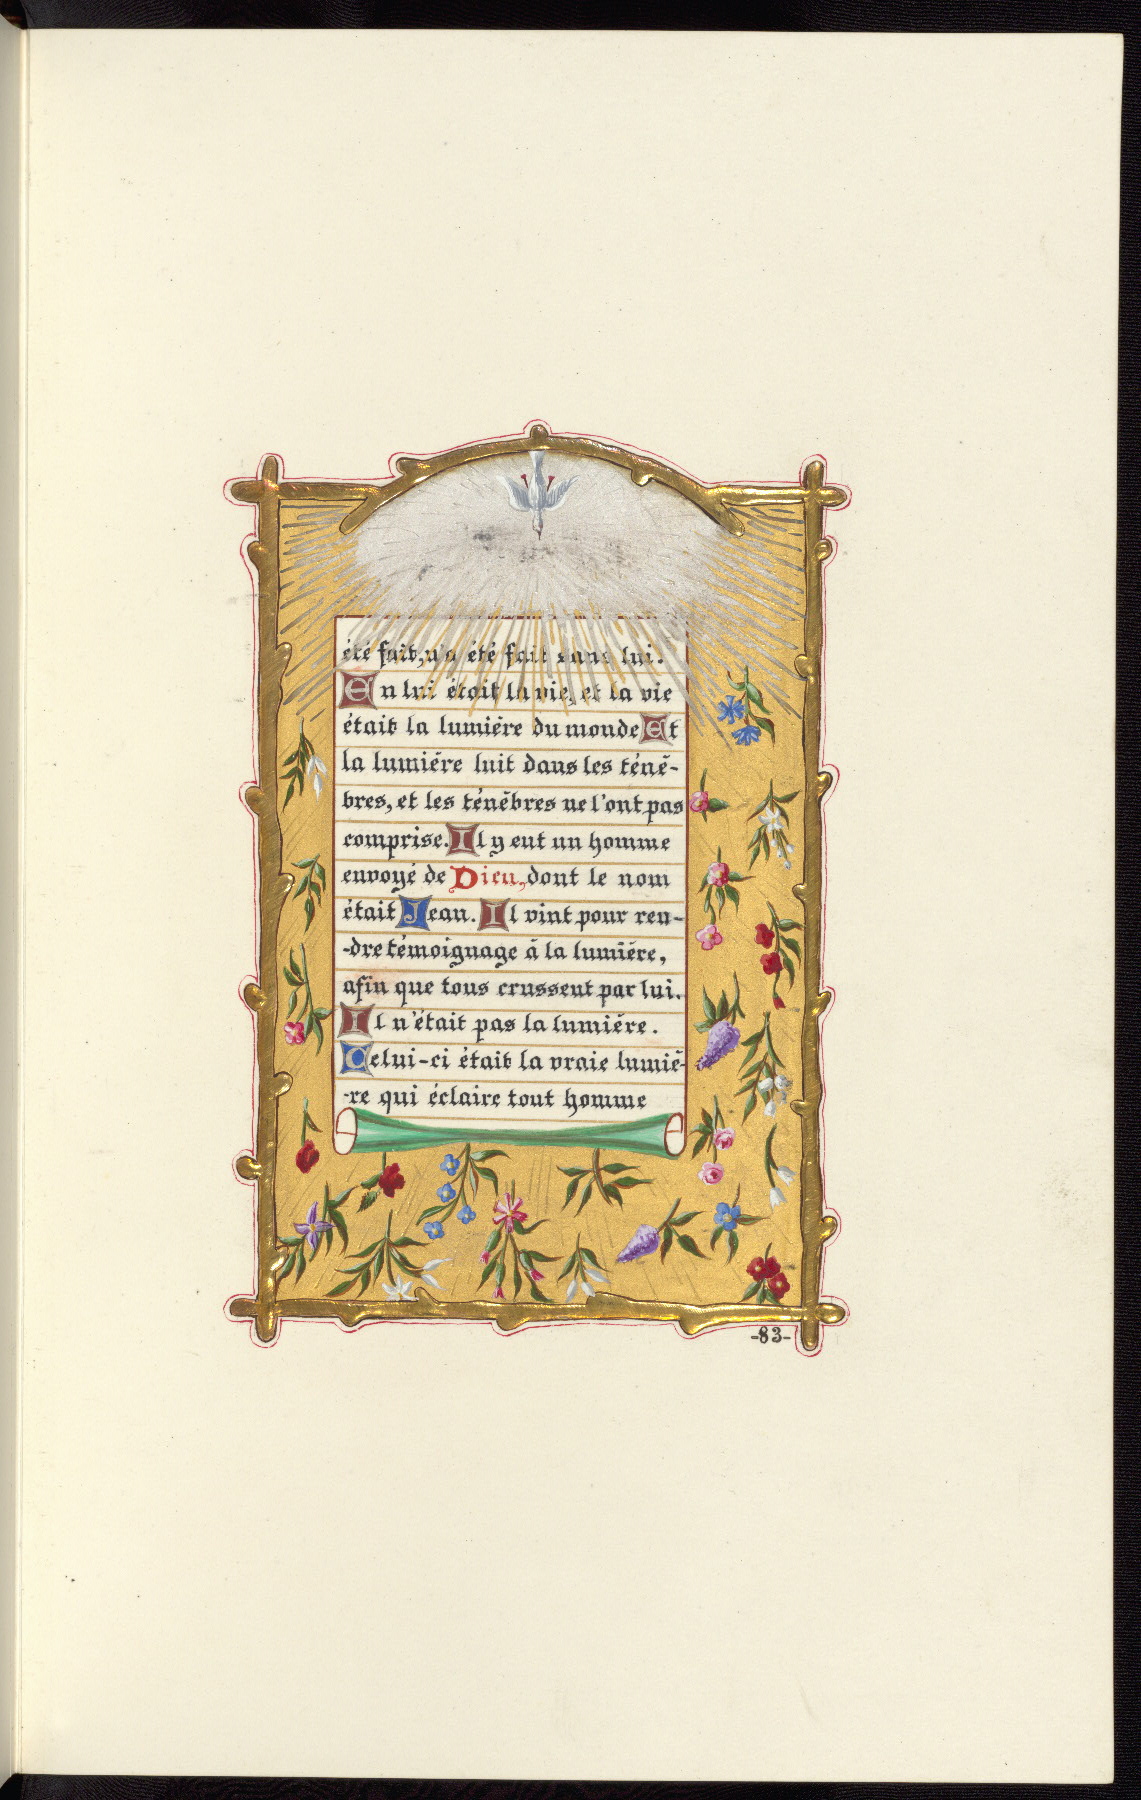 été fait, n'a été fait sans lui.
En lui était la vie, et la vie
était la lumiére du monde Et
la lumiére luit dans les téné-
bres, et les ténébres ne l'ont pas
comprise. Il y eut un homme
envoyé de Dieu, dont le nom
était Jean. Il vint pour ren-
-dre témoignage à la lumiére,
afin que tous crussent par lui.
Il n'était pas la lumiére.
Celui-ci était la vraie lumié-
-re qui éclaire tout homme
-83-